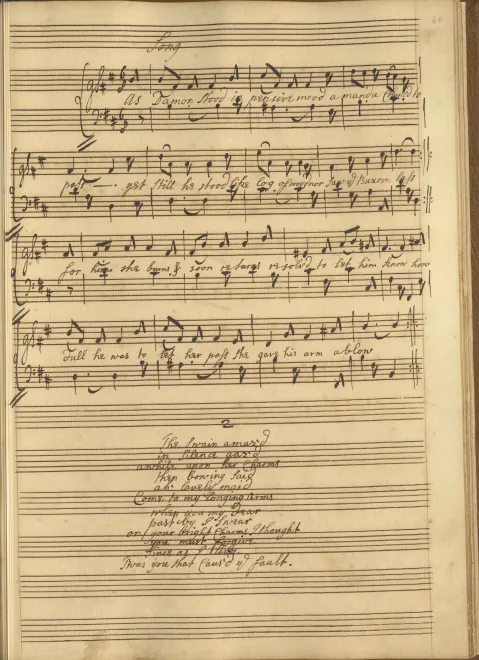 40
Song
As Damon stood in pensive mood a manda chanc'd to
past yet still he stood like log of wood nor saw yᵉ Buxom lass
for him she burns & soon returns resolv'd to let him know how
dull he was to let her pass she gave his arm a blow
2
The Swain amaz'd
in silence gaz'd
awhile upon her Charms
then bowing said
ah lovely maid
Come to my longing arms
when you my Dear
past by I swear
on your bright Charms I thought
you must forgive
since as I live
Twas you that Caus'd yᵉ fault.